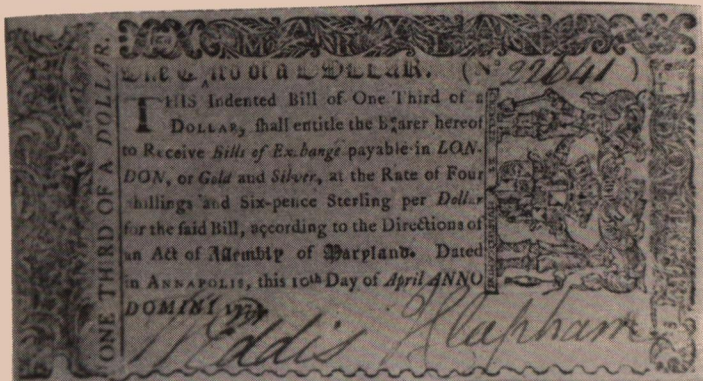 MARYLAND
One Third of a DOLLAR. (No 22641)
THIS Indented Bill of One Third of a
DOLLAR, ſhall entitle the bearer hereof
to Receive Bills of Exchange payable in LON-
DON, or Gold and Silver, at the Rate of Four
ſhillings and Six-pence Sterling per Dollar
for the ſaid Bill, according to the Directions of
an Act of Aſſembly of Maryland. Dated
in ANNAPOLIS, this 10th Day of April ANNO
DOMINI
W Eddis J Clapham
ONE THIRD OF A DOLLAR.